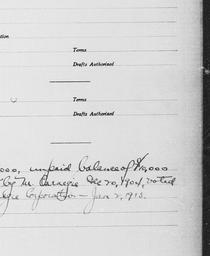 tion
Terms
Drafts Authorized
Terms
Drafts Authorized
000, unpaid balance of $10,000
by Mr. Carnegie Dec 20, 1904, voted
gie Corporation — Jan 2, 1913.